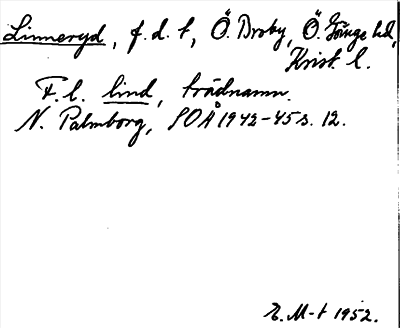 Linneryd, f.d. t, Ö. Broby, Ö. Göinge hd,
Krist. l.
F. l. lind, trädnamn.
N. Palmborg, SOÅ 1942-45 s. 12.
E. M-t 1952.